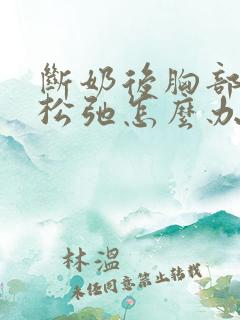 斷奶後胸部
松弛怎麼办
林溫
未经同意禁止转载